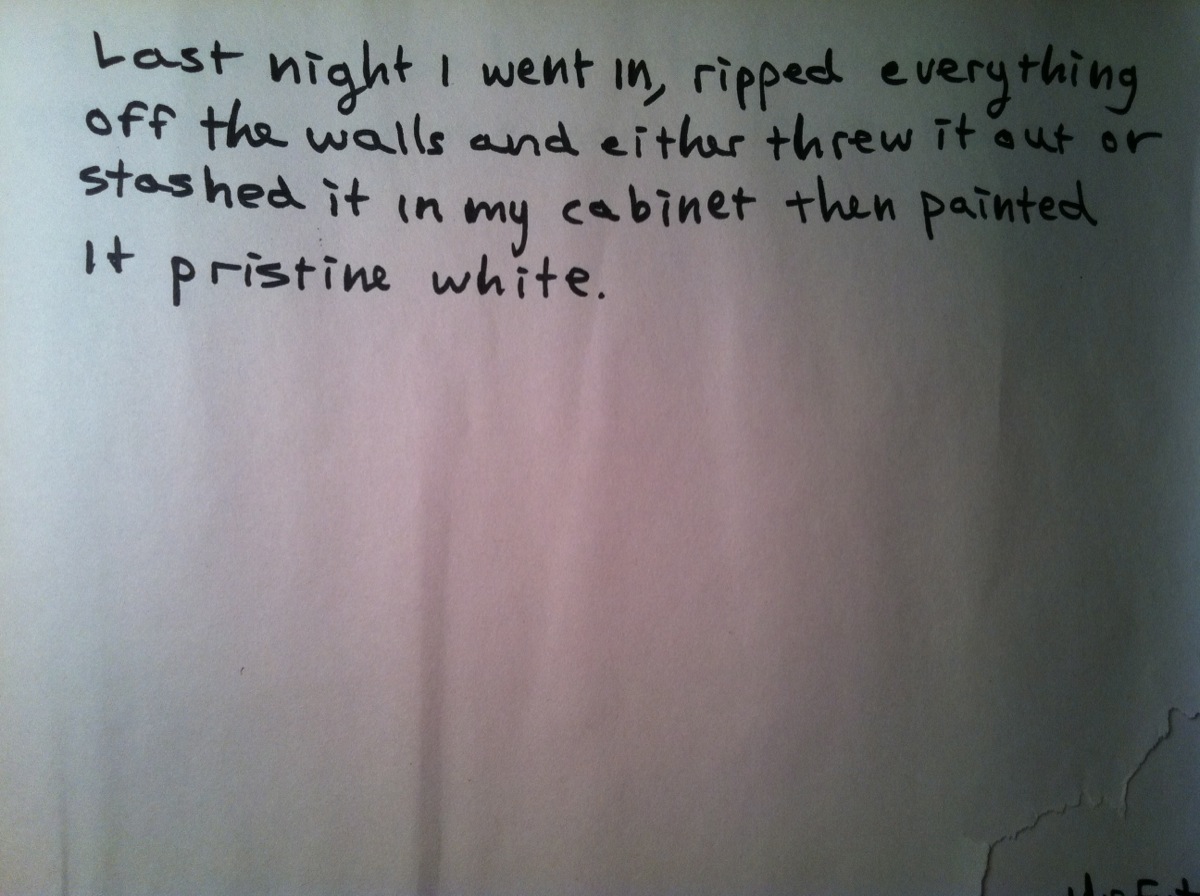 Last night I went in, ripped everything
off the walls and either threw it out or
stashed it in my cabinet then painted
it pristine white.